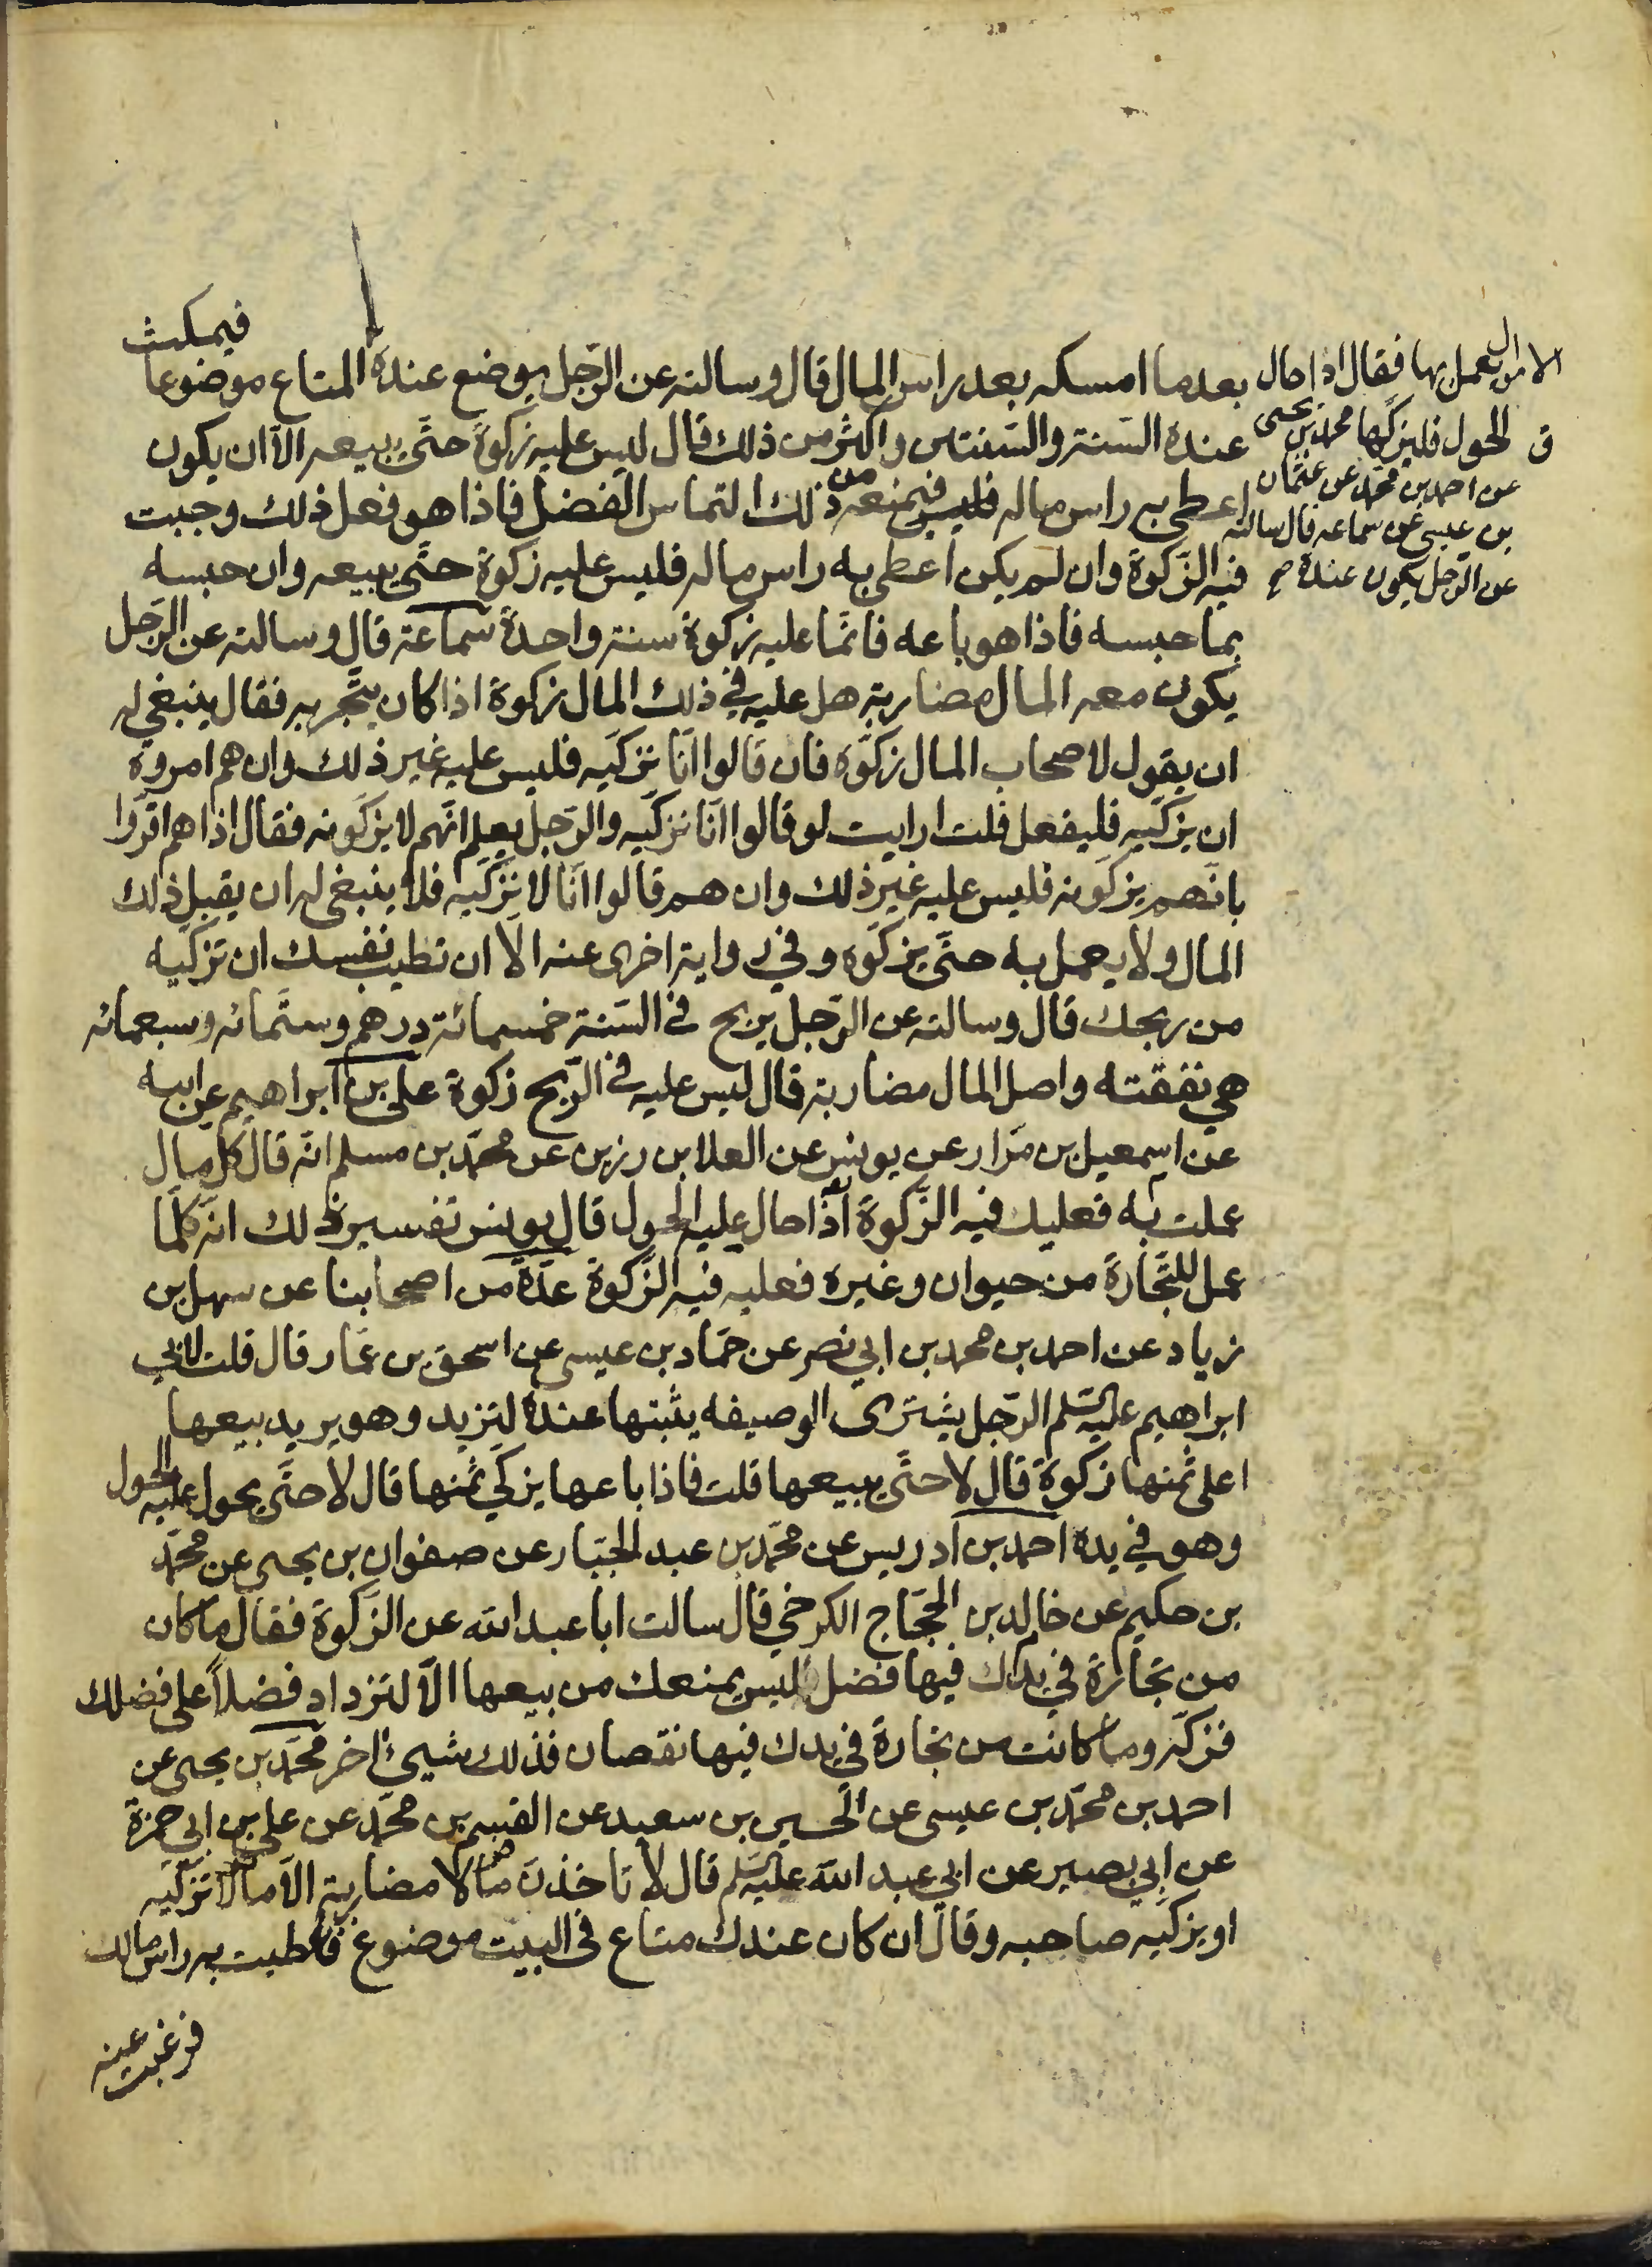 فيمكث
بعدما امسكه بعد راس المال قال وسالته عن الرّجل يوضع عنده المتاع موضوعا
عنده السّنة والسّنتين واكثر من ذلك قال ليس عليه زكوة حتّى يبيعه الّا ان يكون
اعطي به راس ماله فليس فيمنعه من ذلك التماس الفضل فاذا هو فعل ذلك وجبت
فيه الزّكوة وان لم يكن اعطي به راس ماله فليس عليه زكوة حتّى يبيعه وان حبسه
بما حبسه فاذا هو باعه فانّما عليه زكوة سنة واحدة سماعة قال وسالته عن الرّجل
يكون معه المال مضاربة هل عليه في ذلك المال زكوة اذا كان يتّجر به فقال ينبغي له
ان يقول لاصحاب المال زكّوه فان قالوا انّا نزكّيه فليس عليه غير ذلك وان هم امروه
ان يزكّيه فليفعل قلت ارايت لو قالوا انّا نزكّيه والرّجل يعلم انّهم لا يزكّونه فقال اذا هم اقرّوا
بانّهم يزكّونه فليس عليه غير ذلك وان هم قالوا انّا لا نزكّيه فلا ينبغي له ان يقبل ذلك
المال ولا يعمل به حتّى يزكّوه وفي رواية اخرى عنه الّا ان تطيب نفسك ان تزكّيه
من ربحك قال وسالته عن الرّجل يربح في السّنة خمسمائة درهم وستّمائه وسبعمائه
هي نفقته واصل المال مضاربة قال ليس عليه في الرّبح زكوة علي بن ابراهيم عن ابيه
عن اسمعيل بن مرّار عن يونس عن العلا بن رزين عن محمّد بن مسلم انّه قال كل مال
عملت به فعليك فيه الزّكوة اذا حال عليه الحول قال يونس تفسير ذلك انّه كلّما
عمل للتّجارة من حيوان وغيره فعليه فيه الزّكوة عدّة من اصحابنا عن سهل بن
زياد عن احمد بن محمد بن ابي نصر عن حمّاد بن عيسى عن اسحق بن عمّار قال قلت لابي
ابراهيم عليه السّلم الرّجل يشترى الوصيفه يثبتها عنده لتزيد وهو يريد بيعها
اعلى ثمنها زكوة قال لا حتّى يبيعها قلت فاذا باعها يزكّي ثمنها قال لا حتّى يحول عليه الحول
وهو في يده احمد بن ادريس عن محمّد بن عبد الجبّار عن صفوان بن يحيى عن محمّد
بن حكيم عن خالد بن الحجّاج الكرخي قال سالت ابا عبد الله عن الزّكوة فقال ما كان
من تجارة في يدك فيها فضل ليس يمنعك من بيعها الّا لتزداد فضلاً على فضلك
فزكّه وما كانت من تجارة في يدك فيها نقصان فذلك شيئ اخر محمّد بن يحيى عن
احمد بن محمّد بن عيسى عن الحسين بن سعيد عن القسم بن محمّد عن علي بن ابي حمزة
عن ابي بصير عن ابي عبد الله عليه السّلم قال لا تاخذنّ مالا مضاربة الّا مالا تزكّيه
او يزكّيه صاحبه وقال ان كان عندك متاع في البيت موضوع فاعطيت به راس مالك
فرغبت عنه
الاموال يعمل بها فقال اذا حال
الحول فليزكّها محمد بن يحيى
عن احمد بن محمّد عن عثمان
بن عيسى عن سماعه قال سالته
عن الرّجل يكون عنده